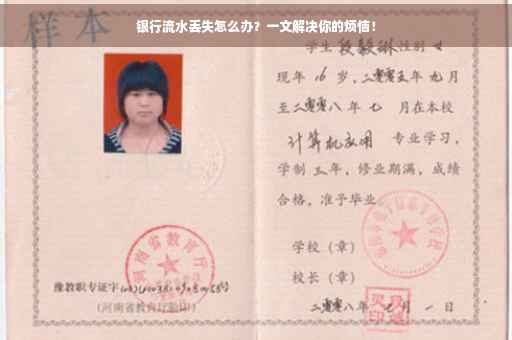 银行流水丢失怎么办？一文解决你的烦恼！
样本
学生 段毅琳 性别 女
现年 16 岁，二零零五年 九 月
至二零零八年 七 月在本校
计算机应用 专业学习，
学制 三 年，修业期满，成绩
合格，准予毕业。
学校（章）
校长（章）
二零零八年 七 月 一 日
河南省教育厅
豫教职专证字
（河南省教育厅验印）